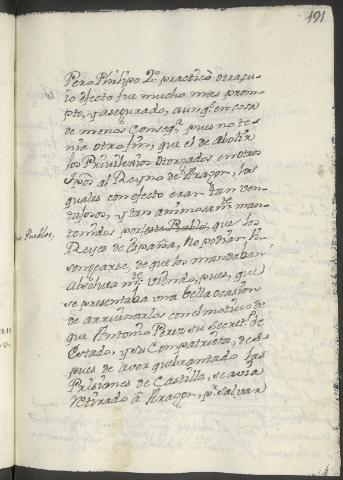 191
Pero Philipo 2º. practicò otra, cu-
io efecto fue mucho mas prom-
pto, y asegurado, aunqe. en cosa
de menos Conseqa. pues no te-
nia otro fin, que el de abolir
los Privilexios otorgados en otros
tpos. al Reyno de Aragon, los
quales con efecto eran tan ven-
tajosos, y tan animosamte. man-
tenidos por este Pueblo, que los
os Pueblos,
Reyes de España, no podian li-
songearse, de que los mandaban
absolutamte. viendo, pues, que
se presentaba una bella ocasion
de arruinarlos con el motivo de
que Antonio Perez su Secreto. de
Estado, y su Compatriota, des-
pues de aver quebrantado las
Prisiones de Castilla, se avia
retirado à Aragon, pa. salvar